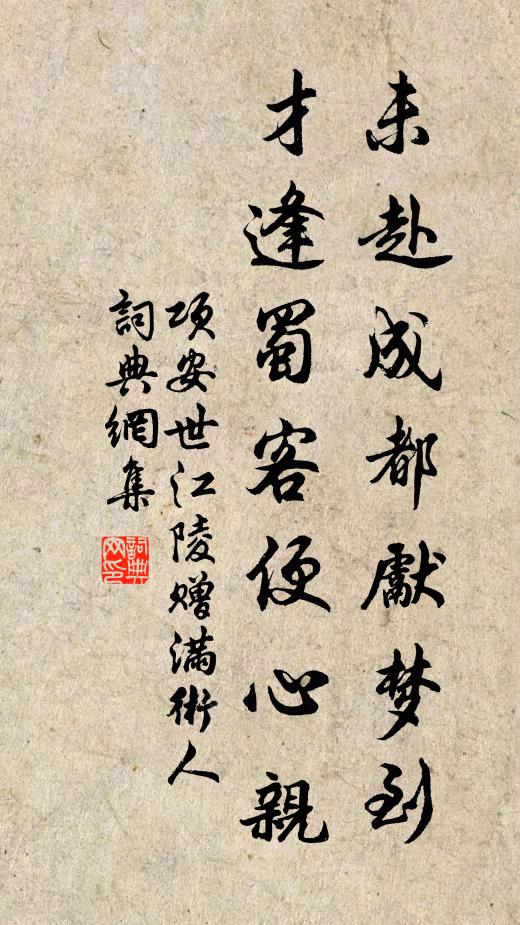 未赴成都獻梦到
才逢蜀客便心親
項安世江陵贈滿術人
詞典網集
詞典网印